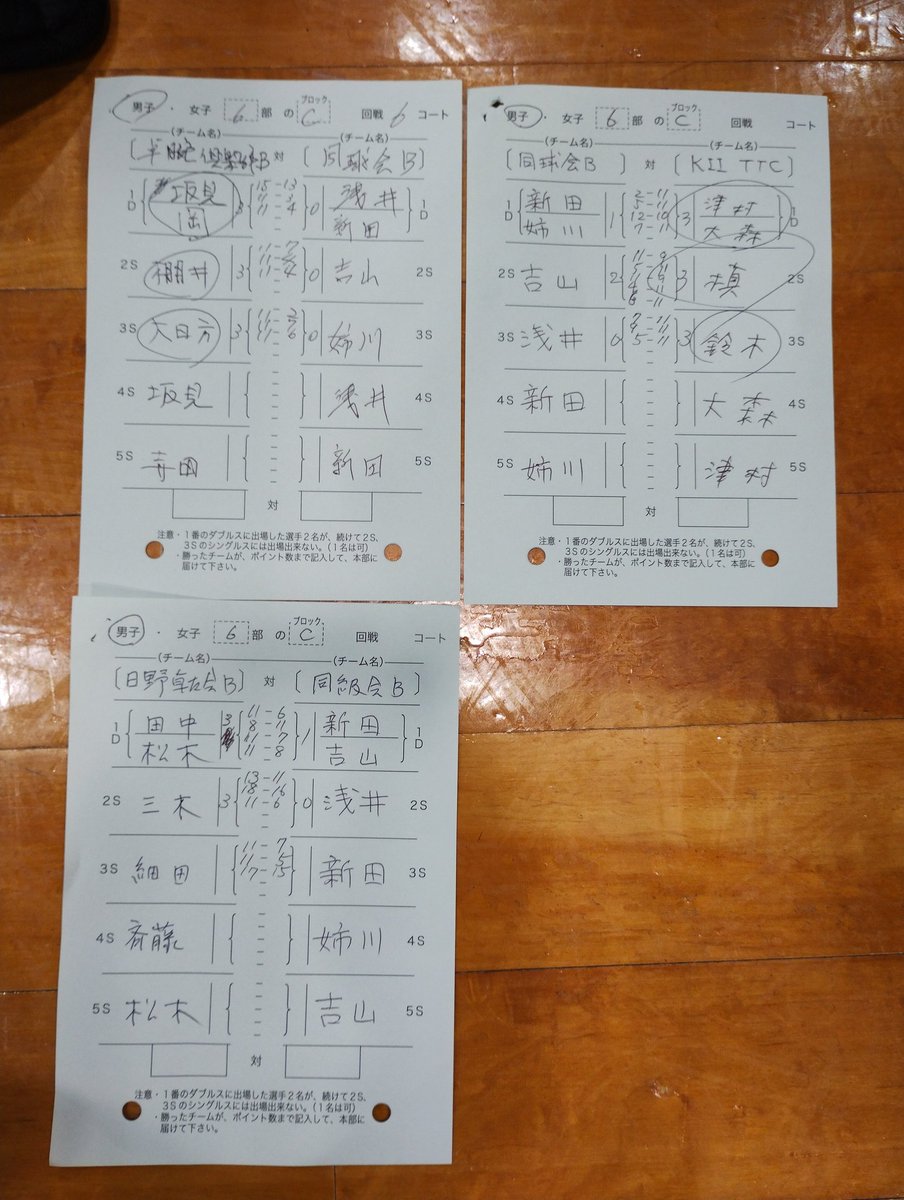 男子 ・ 女子 6 部 の ブロック C 回戦 6 コート
(チーム名) (チーム名)
B 対 同球会B
1D 坂見 岡 3 15-13 11-3 11-4 0 浅井 新田 1D
2S 棚井 3 11-7 0 吉山 2S
3S 大日方 3 11-2 11-6 0 姉川 3S
4S 坂見 浅井 4S
5S 寺田 新田 5S
対
注意・1番のダブルスに出場した選手2名が、続けて2S、
3Sのシングルスには出場出来ない。(1名は可)
・勝ったチームが、ポイント数まで記入して、本部に
届けて下さい。
男子 ・ 女子 6 部 の ブロック C 回戦 コート
(チーム名) (チーム名)
同球会B 対 KII TTC
1D 新田 姉川 1 2-11 5-11 12-10 7-11 3 津村 大森 1D
2S 吉山 2 11-9 3 槙 2S
3S 浅井 0 5-11 3 鈴木 3S
4S 新田 大森 4S
5S 姉川 津村 5S
対
注意・1番のダブルスに出場した選手2名が、続けて2S、
3Sのシングルスには出場出来ない。(1名は可)
・勝ったチームが、ポイント数まで記入して、本部に
届けて下さい。
男子 ・ 女子 6 部 の ブロック C 回戦 コート
(チーム名) (チーム名)
日野卓友会B 対 同級会B
1D 田中 松木 3 11-6 8-11 11-7 11-8 1 新田 吉山 1D
2S 三木 3 13-11 18-16 11-6 0 浅井 2S
3S 細田 11-7 11-5 17-15 新田 3S
4S 斉藤 姉川 4S
5S 松木 吉山 5S
対
注意・1番のダブルスに出場した選手2名が、続けて2S、
3Sのシングルスには出場出来ない。(1名は可)
・勝ったチームが、ポイント数まで記入して、本部に
届けて下さい。